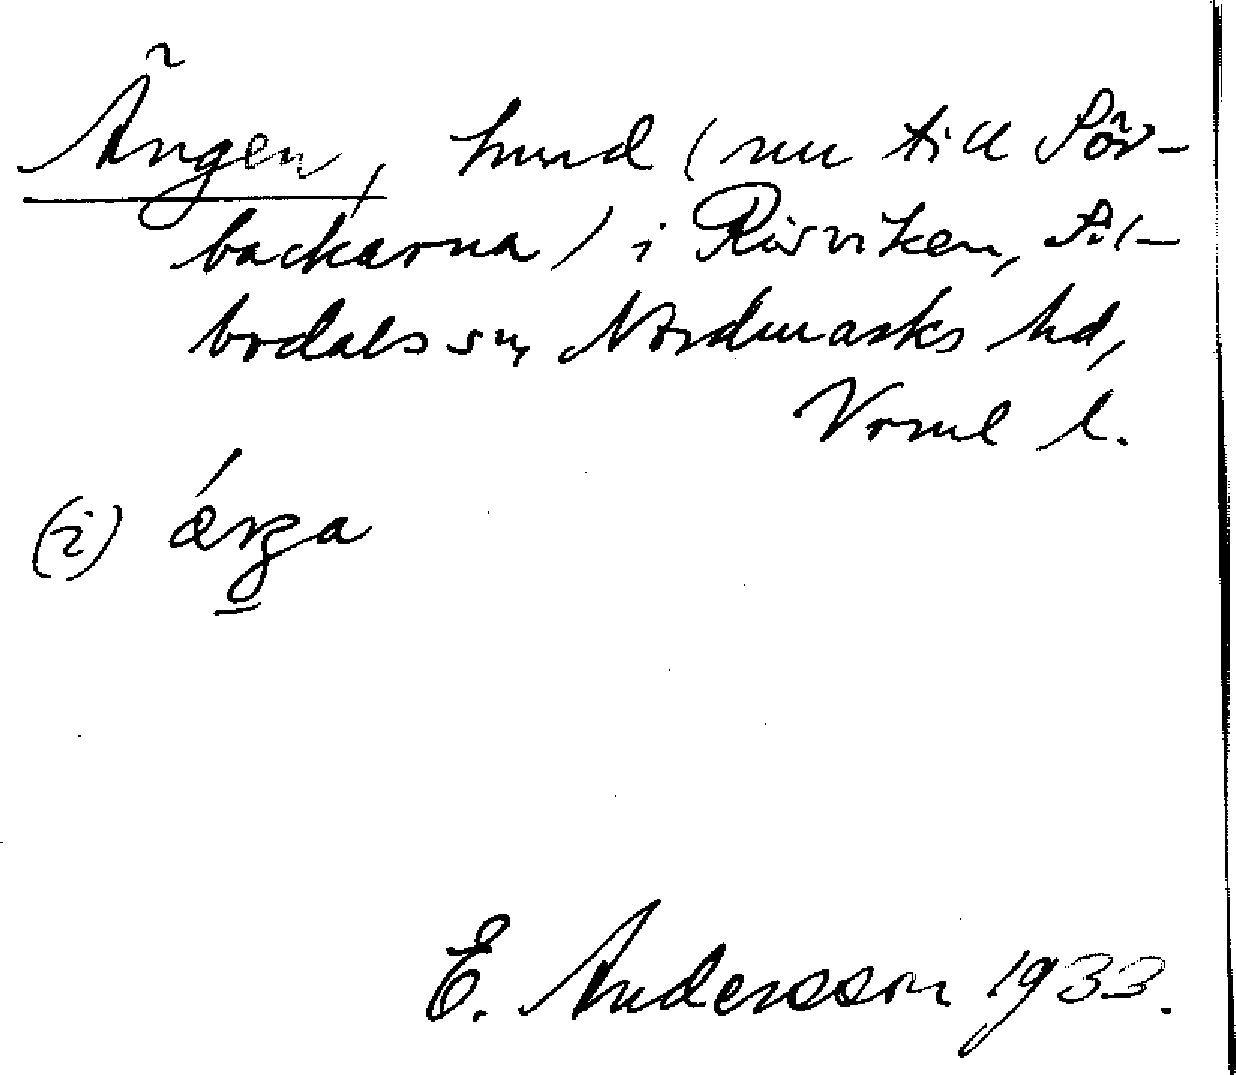 Ängen, hmd (nu till Sör-
backarna) i Rävviken, Sil-
bodals sn, Nordmarks hd,
Vrml l.
(i) ä́ŋa
E. Andersson 1933.